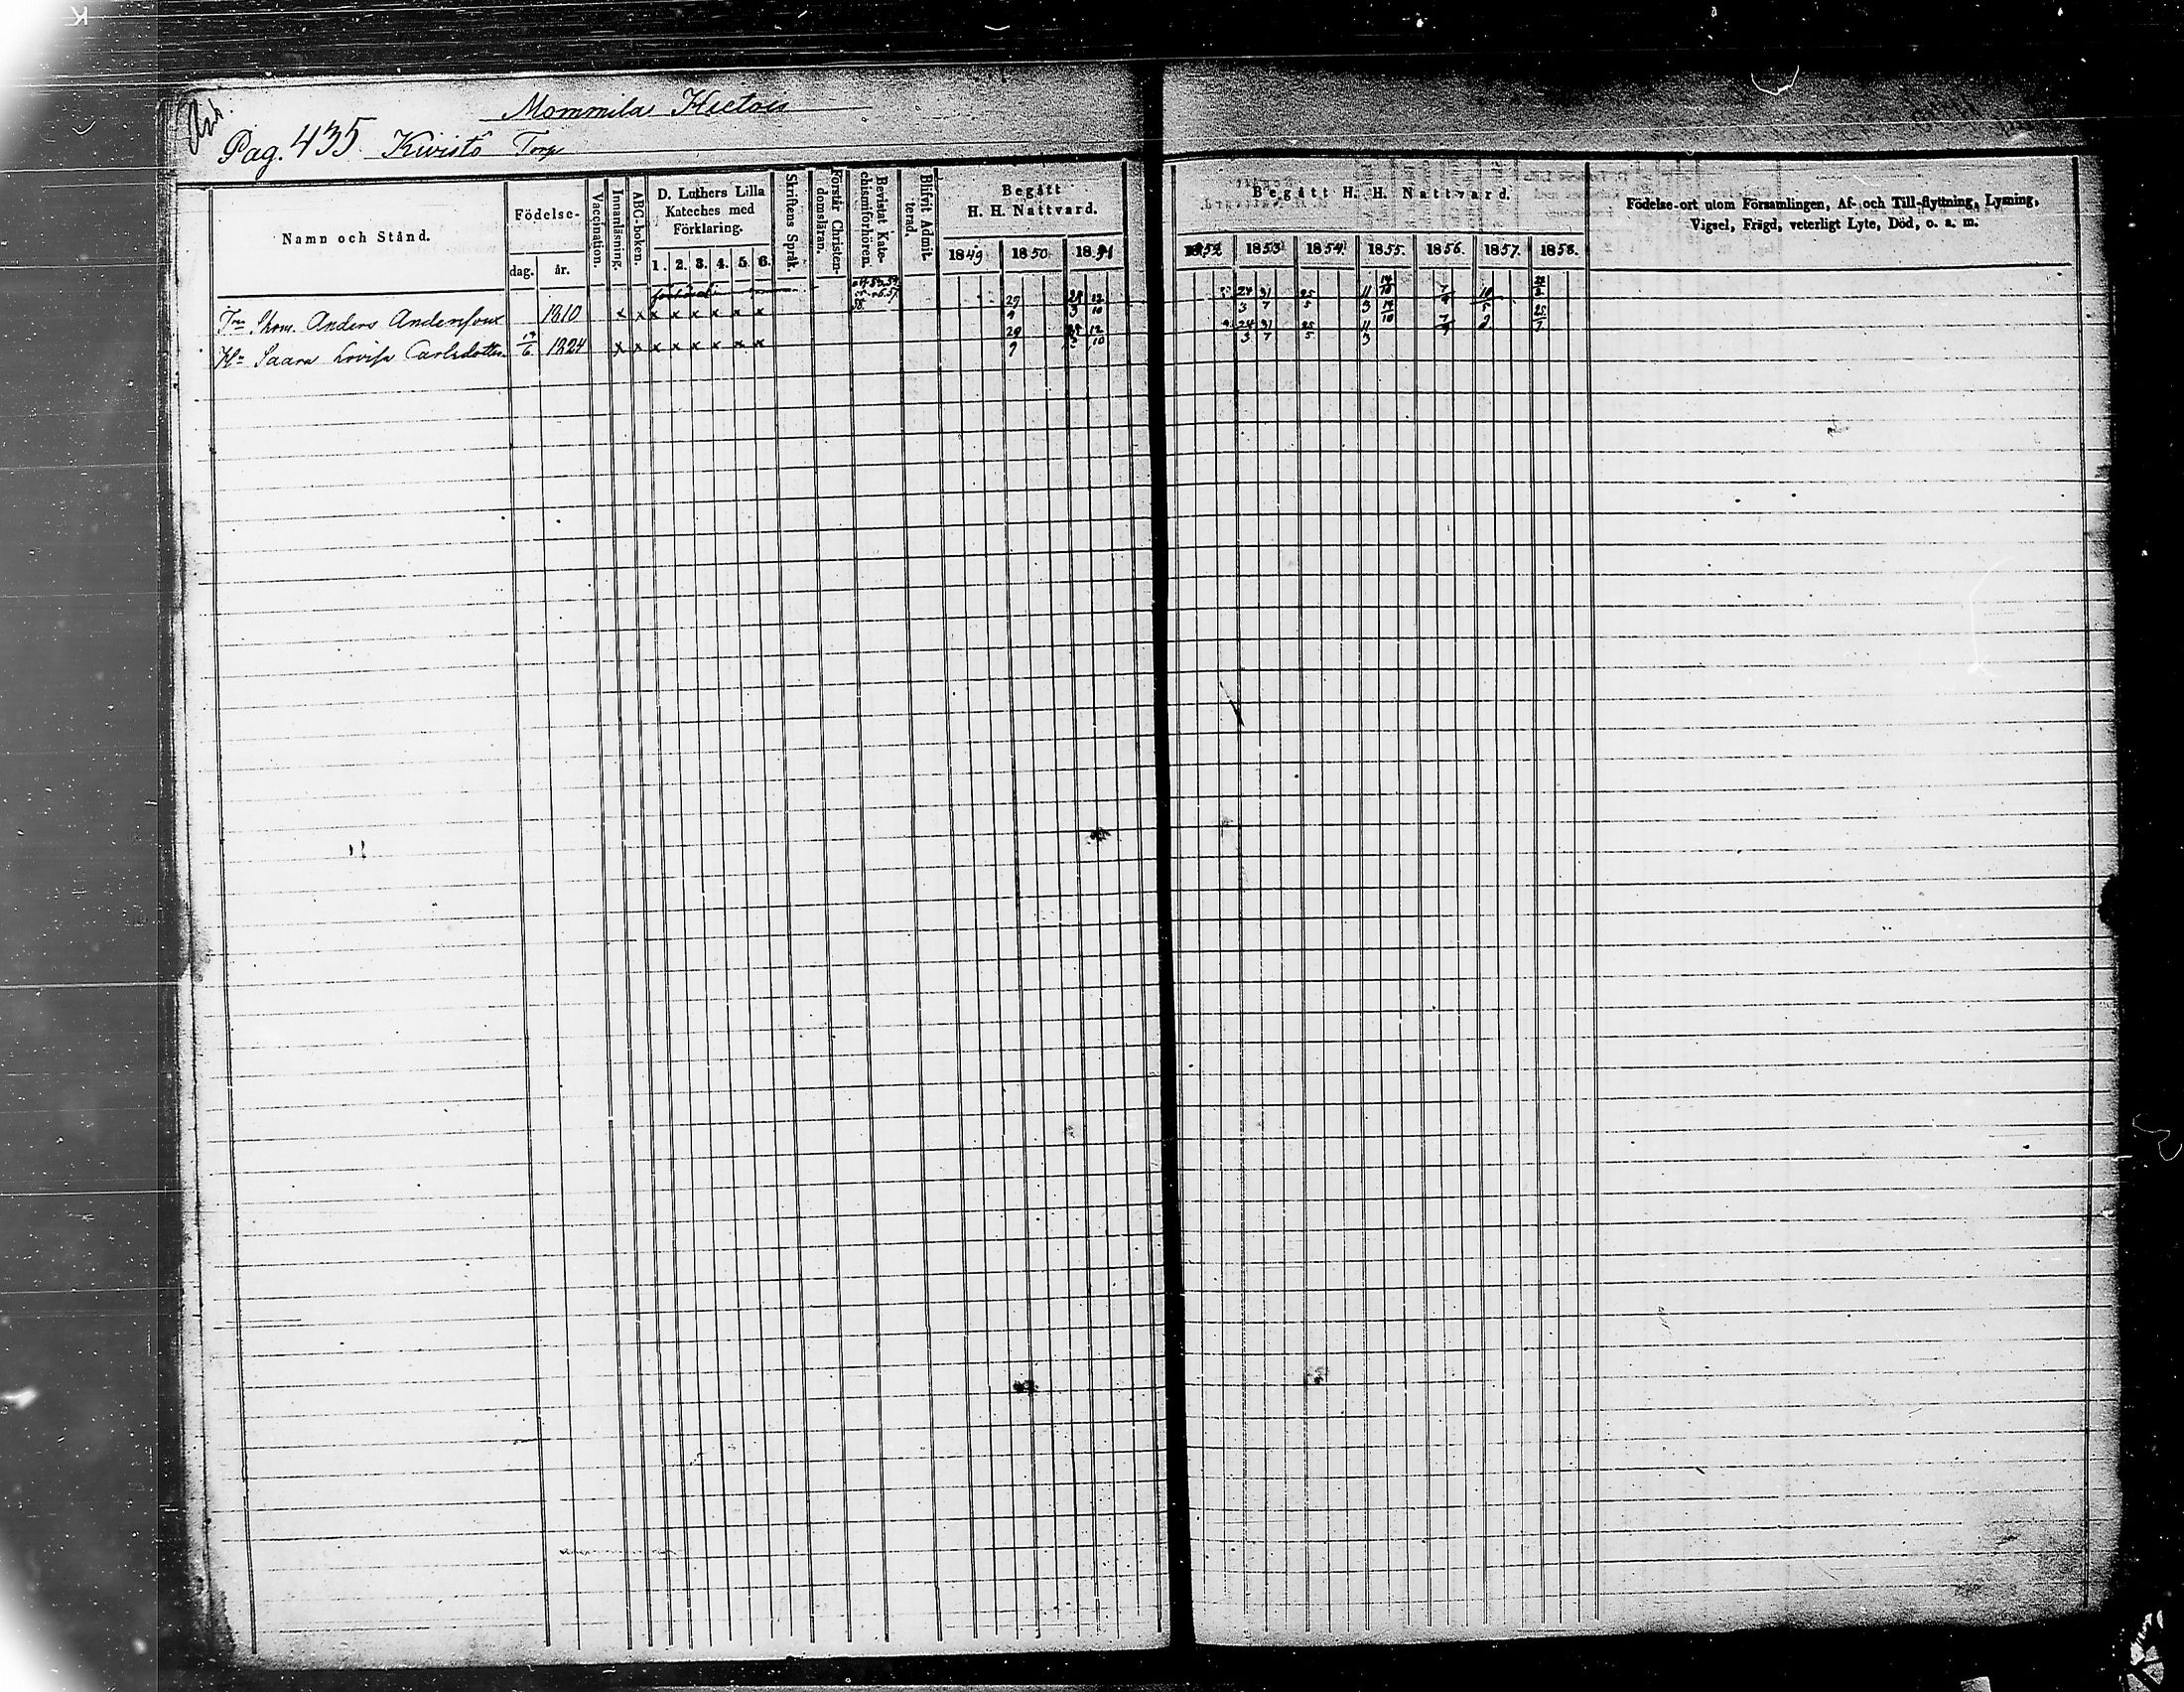 Mommila
Pag. 435. Kivistö Torp
Namn och Stånd.
Födelse-
dag. år.
Vaccination.
Innanläsning.
ABC-boken.
D. Luthers Lilla
Kateches med
Förklaring.
1. 2. 3. 4. 5. 6.
Skriftens Språk.
Förstår Christen-
domsläran.
Bevistat Kate-
chismiförhören.
Blifvit Admit-
terad.
Begått
H. H. Nattvard.
1849 1850 1851
Begått H. H. Nattvard.
1852 1853 1854 1855. 1856. 1857. 1858.
Födelse-ort utom Församlingen, Af- och Till-flyttning, Lysning,
Vigsel, Frägd, veterligt Lyte, Död, o. a. m.
Anders Andersson 1810 x x x x x x x x 29/9 12/10 24/3 31/7 25/5 11/3 14/10 7/9
Saara Lovisa Carlsdotter 1824 x x x x x x x x 29/9 12/10 24/3 31/7 25/5 11/3 14/10 7/9 25/7